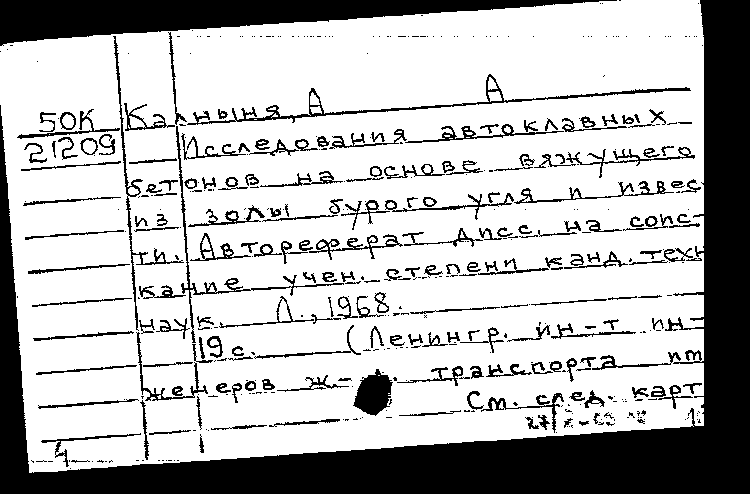 50К Калныня, А А
21209 Исследования автоклавных
бетонов на основе вяжущего
из золы бурого угля и извес
ти. Автореферат дисс. на соис-
кание учен. степени канд. техн
наук. Л., 1968.
19 с. (Ленингр. ин-т ин-
женеров ж-. транспорта им
См. след. карт
4